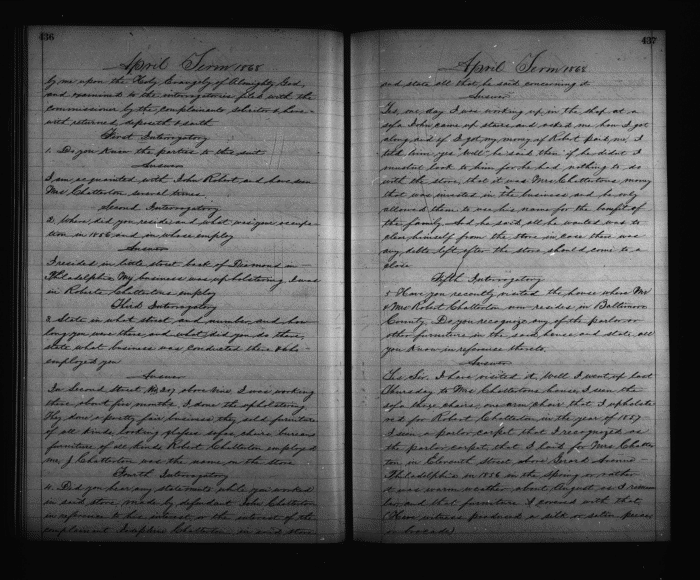 436
April Term 1868
by me upon the Holy Evangely of Almighty God,
and examined to the interrogatories filed with the
commissioner by the complainants solicitor & here-
with returned, deposeth & saith
First Interrogatory
1. Do you know the parties to this suit
Answer
I am acquainted with John Robert and have seen
Mrs Chatterton several times
Second Interrogatory
2. Where did you reside and what was your occupa-
tion in 1856 and in whose employ
Answer
I resided in little street back of Diamond in
Philadelphia, My business was upholstering, I was
in Robert Chattertons employ
Third Interrogatory
3. State in what street and number, and how
long you were there, and what did you do there,
state what business was conducted there & who
employed you
Answer
In Second Street No above Vine I was working
there about five months, I done the upholstering
They done a pretty fair business, they sold furniture
of all kinds, looking glasses sofas, chairs bureaus
furniture of all kinds Robert Chatterton employed
me, J Chatterton was the name on the store
Fourth Interrogatory
4. Did you hear any statements while you worked
in said store made by defendant John Chatterton
in reference to his interest or the interest of the
complainant Josephine Chatterton in said store
437
April Term 1868
and state all that he said concerning it
Answer
Yes, one day I was working up in the shop at a
John came up stairs and asked me how I got
along and if I got my money of Robert I
told him yes, Well, he said then if he didnt I
mustnt look to him for he had nothing to do
with the store, that it was Mrs Chattertons money
that was invested in the business and he only
allowed them to use his name for the benefit of
the family and he said all he wanted was to
clear himself from the store in case there was
any debts left after the store should come to a
close
Fifth Interrogatory
5. Have you recently visited the house where Mr
& Mrs Robert Chatterton now resides in Baltimore
County, Do you recognize any of the parlor or
other furniture in the said house and state all
you know in reference thereto.
Answer
Yes Sir, I have visited it, Well I went up last
Thursday to Mrs Chattertons house, I seen the
sofa, three chairs, one arm chair, that I upholster-
ed for Robert Chatterton in the year of 1857
I seen a parlor carpet that I recognized as
the parlor carpet, that I laid for Mrs Chatter-
ton in Eleventh Street above Girard Avenue
Philadelphia in 1856 in the Spring or rather
it was warm weather about August as I remem-
ber and that furniture I covered with that
(Here witness produced a
or brocade)